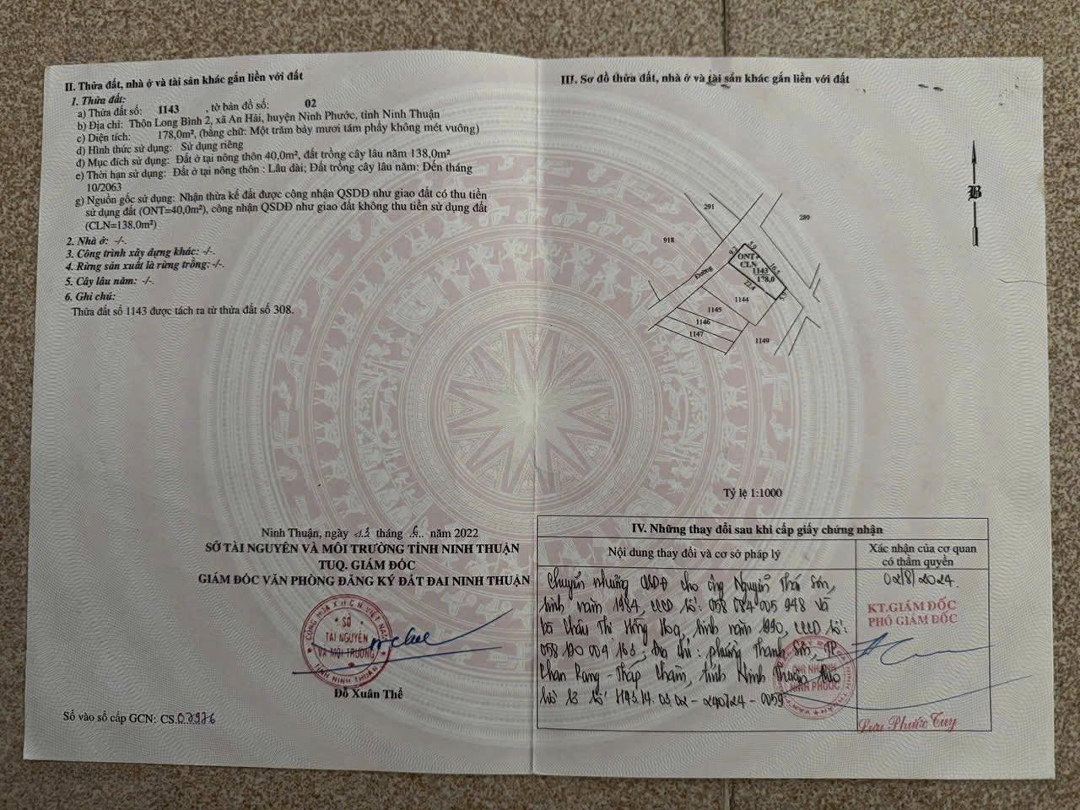 II. Thửa đất, nhà ở và tài sản khác gắn liền với đất
1. Thửa đất:
a) Thửa đất số: 1143 , tờ bản đồ số: 02
b) Địa chỉ: Thôn Long Bình 2, xã An Hải, huyện Ninh Phước, tỉnh Ninh Thuận
c) Diện tích: 178,0m², (bằng chữ: Một trăm bảy mươi tám phẩy không mét vuông)
d) Hình thức sử dụng: Sử dụng riêng
đ) Mục đích sử dụng: Đất ở tại nông thôn 40,0m², đất trồng cây lâu năm 138,0m²
e) Thời hạn sử dụng: Đất ở tại nông thôn : Lâu dài; Đất trồng cây lâu năm: Đến tháng
10/2063
g) Nguồn gốc sử dụng: Nhận thừa kế đất được công nhận QSDĐ như giao đất có thu tiền
sử dụng đất (ONT=40,0m²), công nhận QSDĐ như giao đất không thu tiền sử dụng đất
(CLN=138,0m²)
2. Nhà ở: -/-.
3. Công trình xây dựng khác: -/-.
4. Rừng sản xuất là rừng trồng: -/-.
5. Cây lâu năm: -/-.
6. Ghi chú:
Thửa đất số 1143 được tách ra từ thửa đất số 308.
Ninh Thuận, ngày 13 tháng 6 năm 2022
SỞ TÀI NGUYÊN VÀ MÔI TRƯỜNG TỈNH NINH THUẬN
TUQ. GIÁM ĐỐC
GIÁM ĐỐC VĂN PHÒNG ĐĂNG KÝ ĐẤT ĐAI NINH THUẬN
CỘNG HÒA X.H.C.N VIỆT NAM
SỞ
TÀI NGUYÊN
VÀ MÔI TRƯỜNG
TỈNH NINH THUẬN
Đỗ Xuân Thể
Số vào sổ cấp GCN: CS.07976
III. Sơ đồ thửa đất, nhà ở và tài sản khác gắn liền với đất
B
291
289
918
Đường
9.2
5.9
ONT+
CLN
1143
178.0
22.4
1144
1145
1146
1147
1149
Tỷ lệ 1:1000
IV. Những thay đổi sau khi cấp giấy chứng nhận
Nội dung thay đổi và cơ sở pháp lý
Xác nhận của cơ quan
có thẩm quyền
Chuyển nhượng QSDĐ cho ông Nguyễn Thái Sơn,
sinh năm 1984, CCCD số: 058 084 005 948 và
bà Châu Thị Hồng Hoa, sinh năm 1990, CCCD số:
058 190 004 163; địa chỉ: phường Thanh Sơn, TP.
Phan Rang - Tháp Chàm, tỉnh Ninh Thuận theo
hồ sơ số 1193.14.03.02 - 240724 - 0059
02/8/2024
KT.GIÁM ĐỐC
PHÓ GIÁM ĐỐC
CHI NHÁNH
NINH PHƯỚC
Lưu Phước Tuy